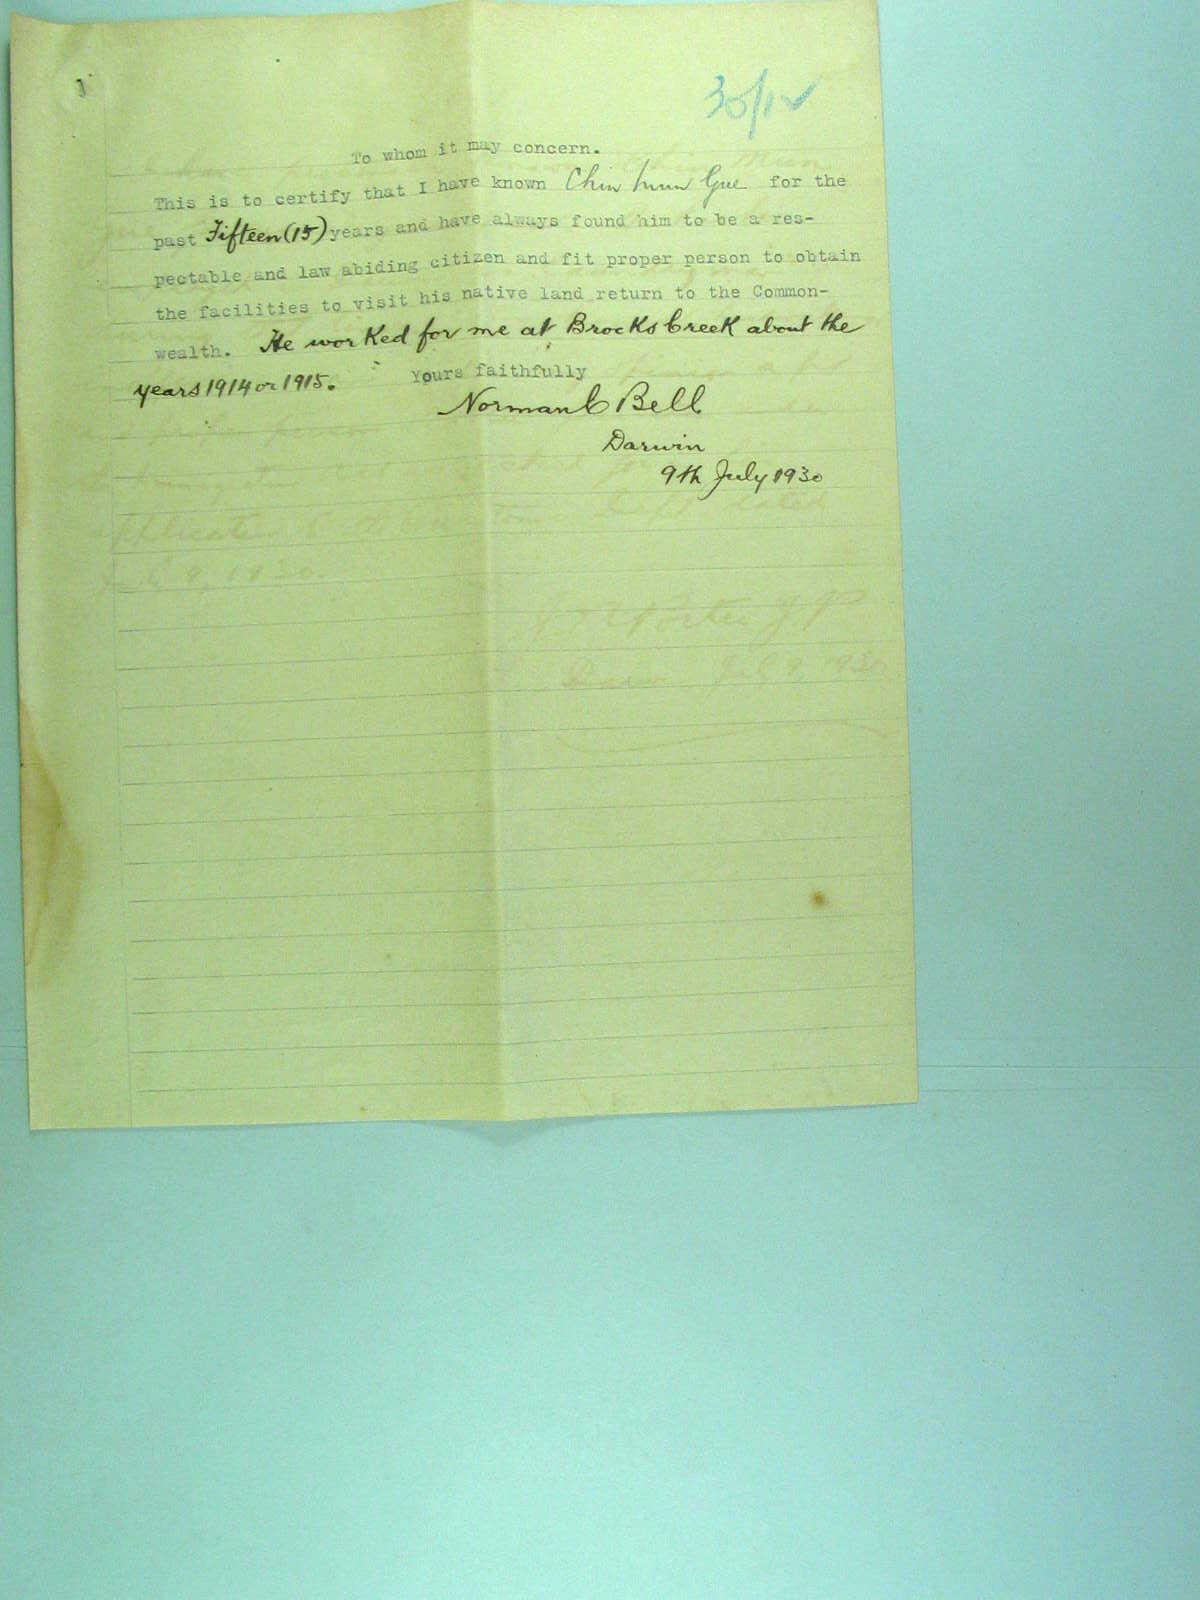 30/12
To whom it may concern.
This is to certify that I have known Chin Mun Gue for the
past Fifteen (15) years and have always found him to be a res-
pectable and law abiding citizen and fit proper person to obtain
the facilities to visit his native land return to the Common-
wealth. He worked for me at Brocks Creek about the
years 1914 or 1915.
Yours faithfully
Norman C Bell
Darwin
9th July 1930